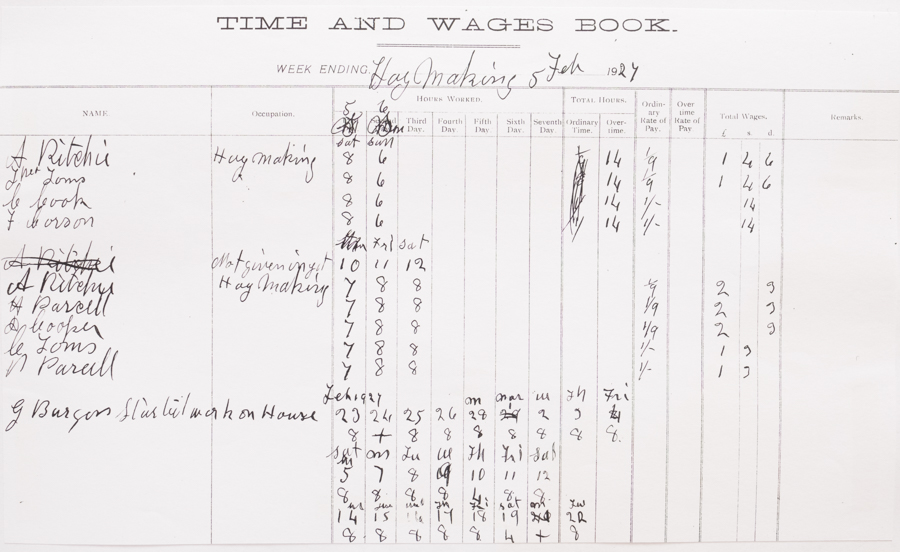 TIME AND WAGES BOOK.
WEEK ENDING Hay Making 5 Feb 1927
NAME. Occupation. HOURS WORKED. TOTAL HOURS. Ordinary Rate of Pay. Over time Rate of Pay. Total Wages. Remarks.
5 6 Third Day. Fourth Day. Fifth Day. Sixth Day. Seventh Day. Ordinary Time. Overtime. £ s. d.
Sat Sun
A Ritchie Hay Making 8 6 14 1/9 1 4 6
Toms 8 6 14 1/9 1 4 6
C Cook 8 6 14 1/- 14
F 8 6 14 1/- 14
Fri Sat
A Ritchie Not given in yet 10 11 12
A Ritchie Hay Making 7 8 8 1/9 2 3
H Parcell 7 8 8 1/9 2 3
Cooper 7 8 8 1/9 2 3
C Toms 7 8 8 1/- 1 3
Parcell 7 8 8 1/- 1 3
Feb 1927 m mar w Th Fri
G Burgess work on House 23 24 25 26 28 2 3 4
8 + 8 8 8 8 8 8 8
Sat m Tu w Th Fri Sat
5 7 8 9 10 11 12
8 8 8 8 4 8 8
Sat m Tu
14 15 16 17 18 19 22
8 8 8 8 8 4 + 8